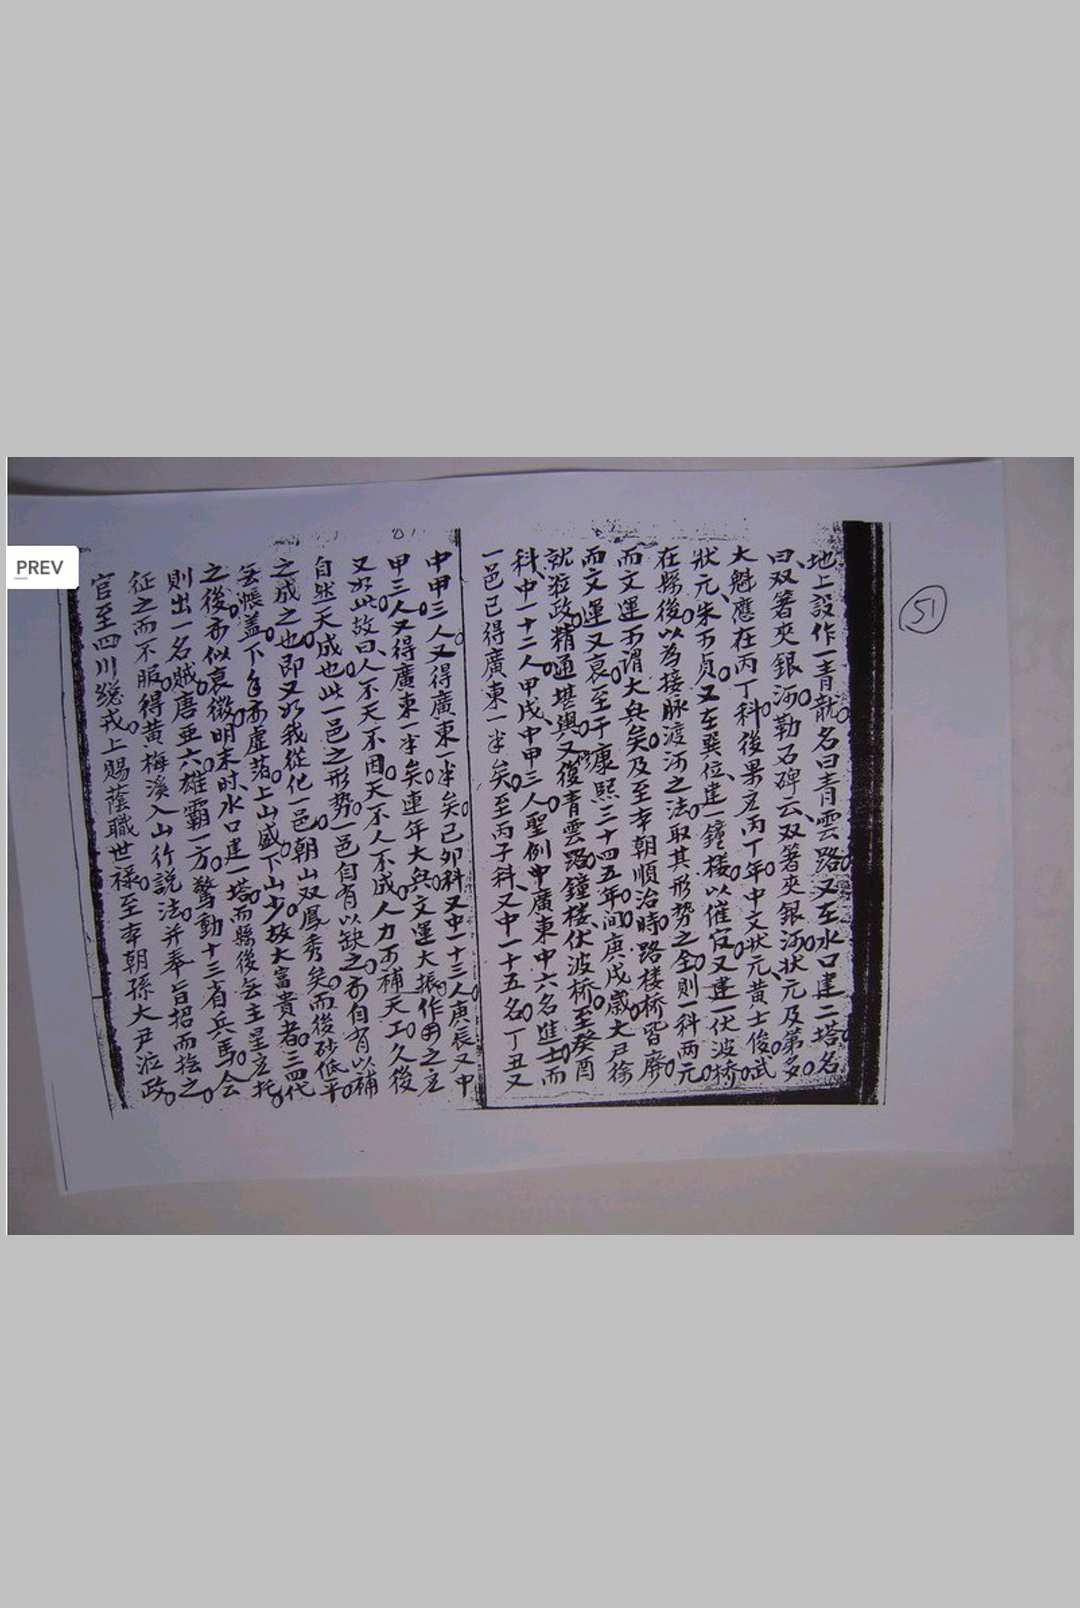 PREV
51
地上設作一青龍名曰青雲路又在水口建二塔名
曰双箸夾銀河勒石碑云双箸夾銀河狀元及第多
大魁應在丙丁科後果应丙丁年中文状元黃士俊武
狀元朱可貞又在巽位建一鐘楼以催官又建一伏波橋
在縣後以為接脉渡河之法取其形势之全則一科两元
而文運可謂大兴矣及至本朝順治時路楼桥皆廃
而文運又衰至于康熙三十四五年间庚戌歲大尹徐
就涖政精通堪輿又復青雲路鐘楼伏波桥至癸酉
科中一十二人甲戌中甲三人聖例中廣東中六名進士而
一邑已得廣東一半矣至丙子科又中一十五名丁丑又
中甲三人又得廣東一半矣己卯科又中一十三人庚辰又中
甲三人又得廣東一半矣連年大兴文運大振作用之应
又如此故曰人不天不因天不人不成人力可補天工久後
自然天成也此一邑之形势一邑自有以缺之而自有以補
之成之也即又如我從化一邑朝山双鳳秀矣而後砂低平
無帳盖下手亦虚蕩上山盛下山少故大富貴者三四代
之後亦似衰微明末时水口建一塔而縣後無主星应托
則出一名贼唐亜六雄霸一方驚動十三省兵馬会
征之而不服得黃梅溪入山行説法并奉旨招而撫之
官至四川總戎上賜蔭職世禄至本朝孫大尹涖政